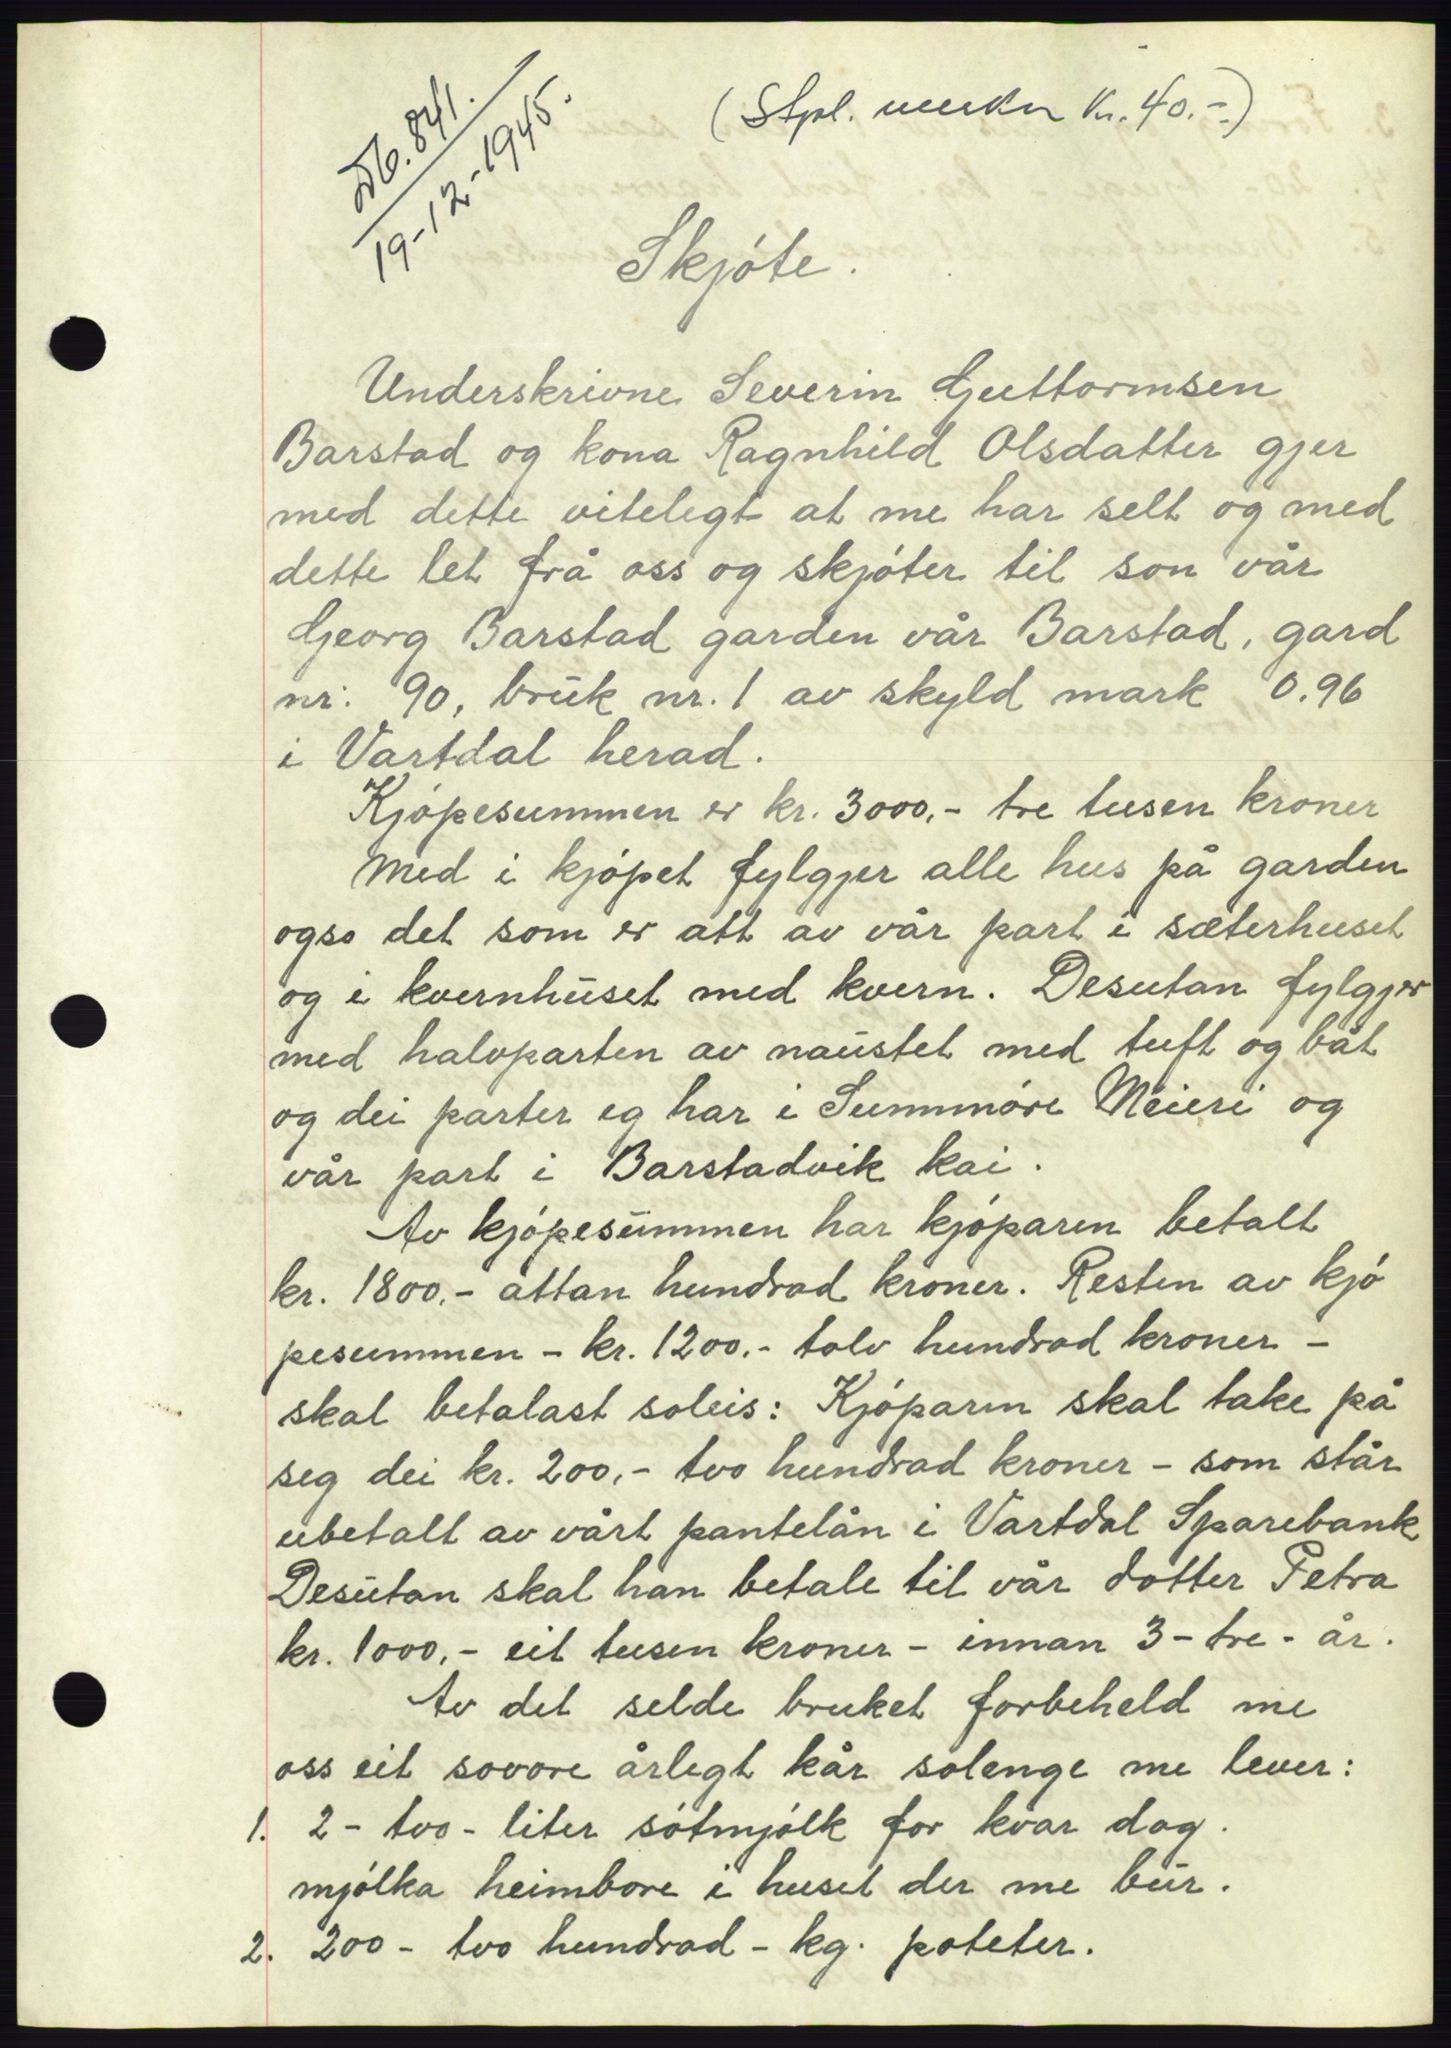 Db. 841.
19-12-1945.
(Stpl. merker Kr. 40.-)
Skjóte.
Underskrivne Severin Guttormsen
Barstad og kona Ragnhild Olsdatter gjer
med dette vitelegt at me har selt og med
dette let frå oss og skjóter til son vår
Georg Barstad garden vår Barstad, gard
nr: 90, bruk nr. 1 av skyld mark 0.96
i Vartdal herad.
Kjópesummen er kr. 3000,- tre tusen kroner
Med i kjópet fylgjer alle hus på garden
ogso det som er att av vår part i sæterhuset
og i kvernhuset med kvern. Desutan fylgjer
med halvparten av naustet med tuft og båt
og dei parter eg har i Sunnmóre Meieri og
vår part i Barstadvik kai.
Av kjópesummen har kjóparen betalt
kr. 1800,- åttan hundrad kroner. Resten av kjó
pesummen - kr. 1200.- tolv hundrad kroner -
skal betalast soleis: Kjóparen skal take på
seg dei kr. 200,- tvo hundrad kroner - som står
ubetalt av vårt pantelån i Vartdal Sparebank
Desutan skal han betale til vår dotter Petra
kr. 1000,- eit tusen kroner - innan 3 - tre - år.
Av det selde bruket forbeheld me
oss eit sovore årlegt kår solenge me lever:
1. 2 - tvo - liter sótmjólk for kvar dag.
mjólka heimbore i huset der me bur.
2. 200 - tvo hundrad - kg. poteter.